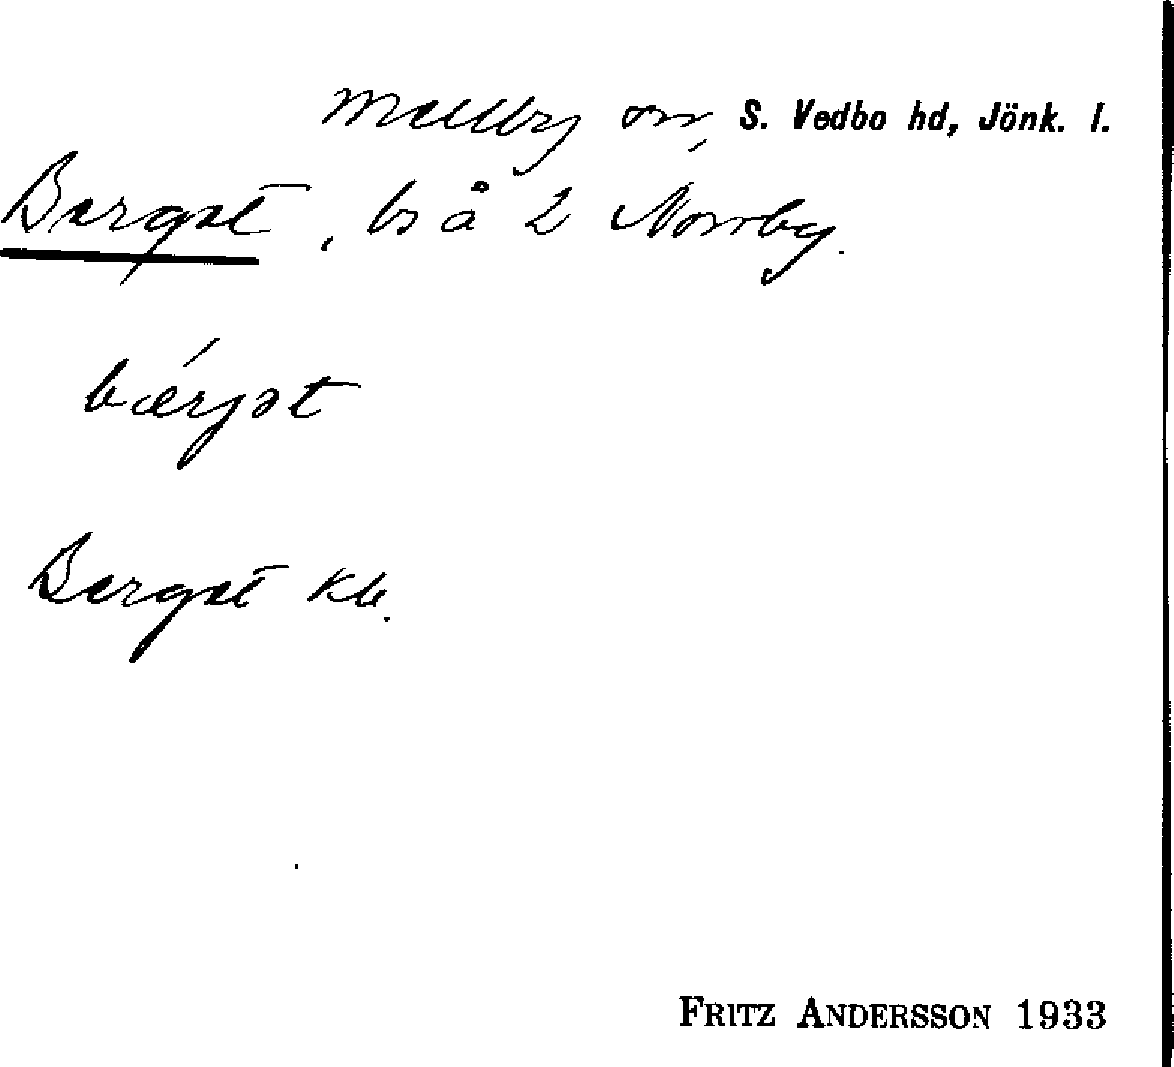 Mellby sn, S. Vedbo hd, Jönk. l.
Berget, ls å 2 Norrby.
bærjət
Berget kb.
FRITZ ANDERSSON 1933